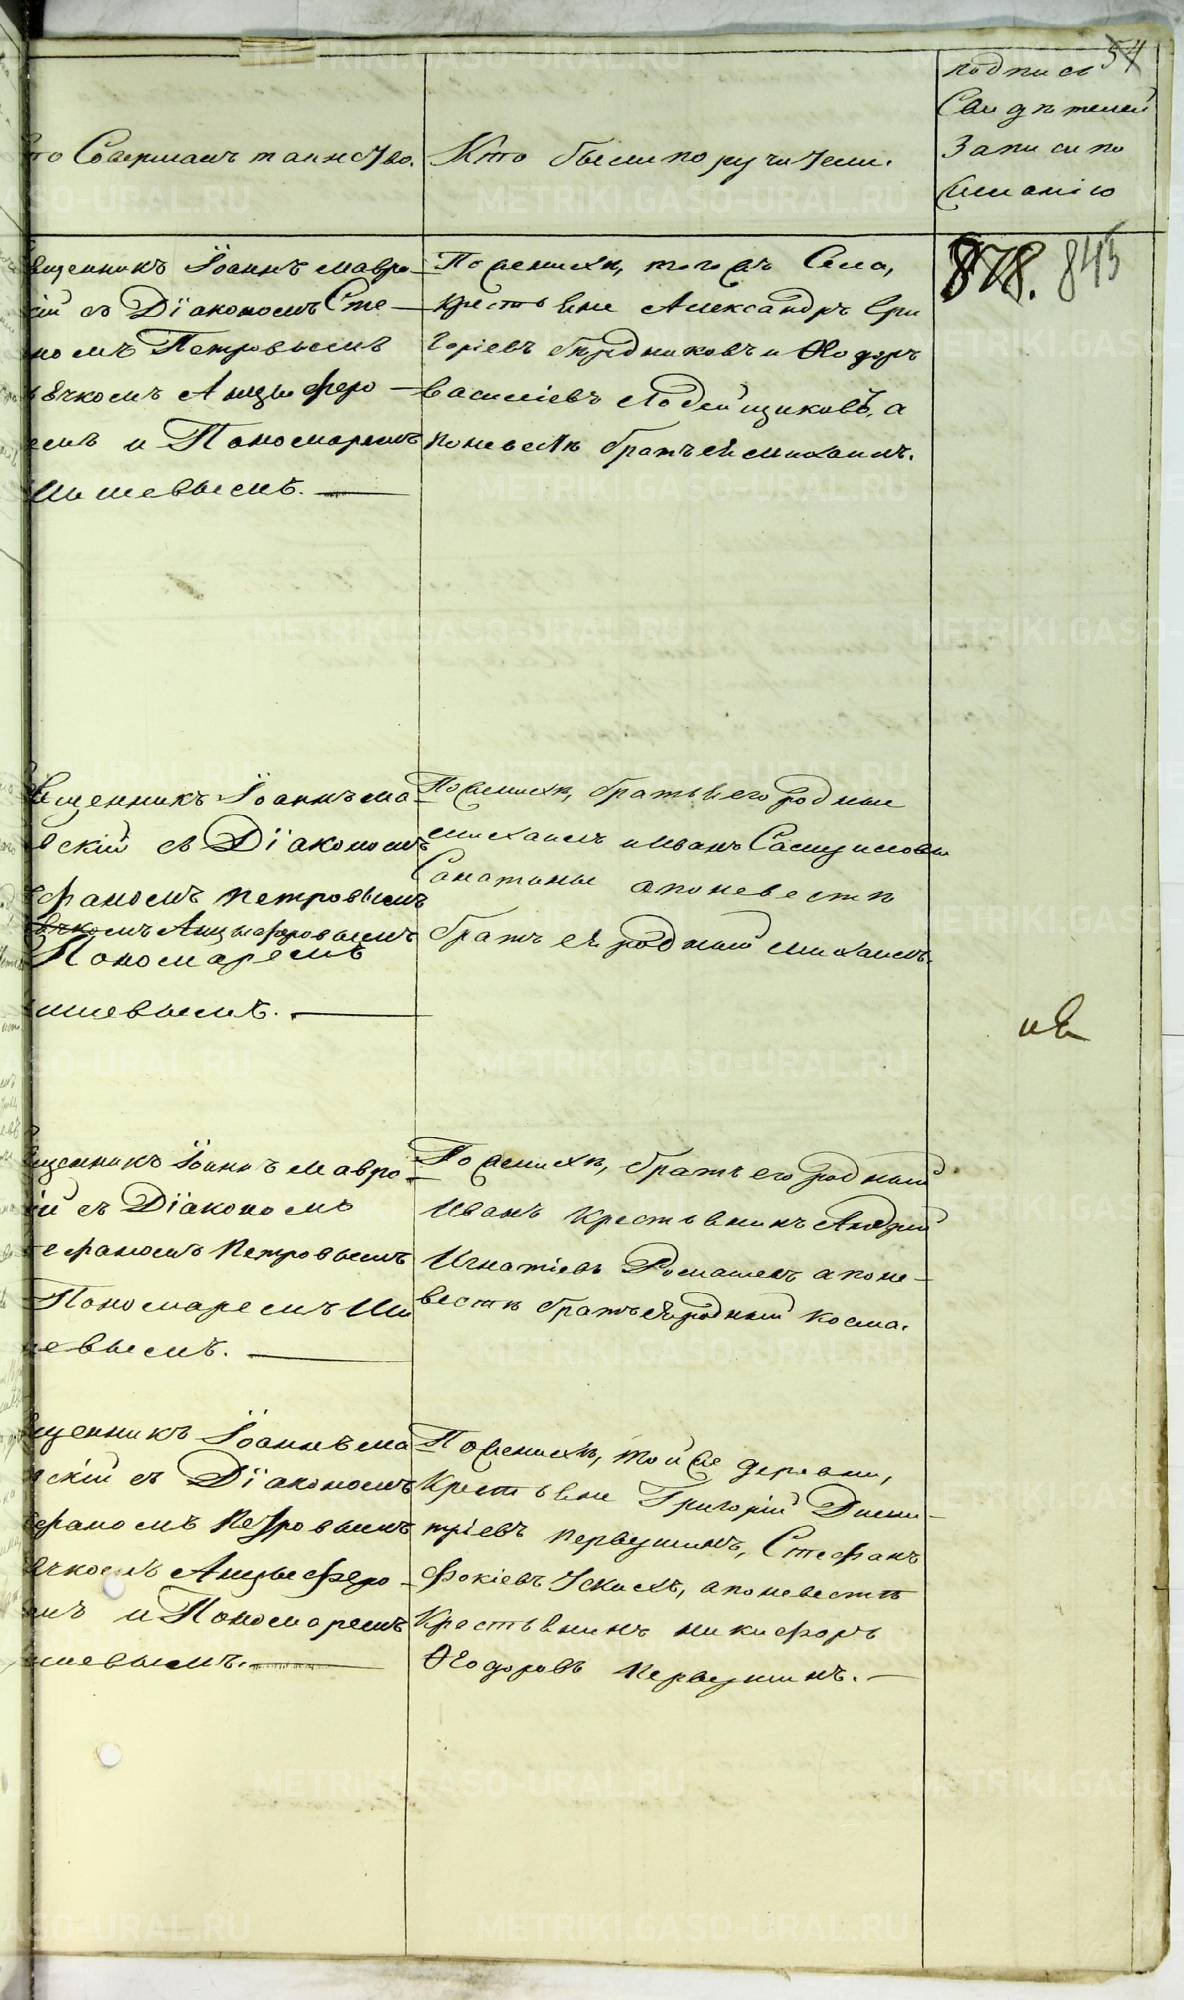 54
то Совершалъ таинство.
Кто были поручители.
подпись
Свидѣтелей
Записи по
желанію
878. 845
вященникъ Іоаннъ мавро-
кій съ Діакономъ Сте-
номъ Петровымъ
ячкомъ Анцыферо-
емъ и Пономаремъ
Шишевымъ.
По женихѣ, тогожъ Села,
крестьяне Александръ Гри
горіевъ Бредниковъ и Ѳеодоръ
Василіевъ Лобейщиковъ, а
по невѣстѣ братъ ея михаилъ.
вященникъ Іоаннъ ма
вскій съ Діакономъ
ефаномъ петровымъ
ячкомъ Анцыферовымъ
Пономаремъ
ишевымъ.
По женихѣ, братья его родные
михаилъ и иванъ Самуиловы
Сапатины а по невестѣ
братъ ея родный михаилъ.
не
ященникъ Іоаннъ мавро-
ій съ Діакономъ
тефаномъ петровымъ
Пономаремъ Ши
шевымъ.
По женихѣ, братъ его родный
иванъ крестьянинъ Андрей
Игнатіевъ Ромашевъ а по не-
вестѣ братъ ея родный косма.
ященникъ Іоаннъ ма
вскій съ Діакономъ
ефаномъ Петровымъ
ячкомъ Анцыферо-
мъ и Пономаремъ
ишевымъ.
По женихѣ, той же деревни,
крестьяне Григорій Дими-
тріевъ первушинъ, Стефанъ
Фокіевъ Ускихъ, а по невестѣ
крестьянинъ никифоръ
Ѳеодоровъ первушинъ.
METRIKI.GASO-URAL.RU